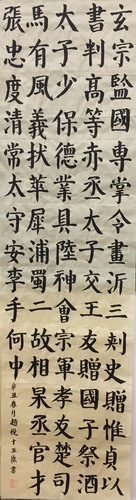 玄宗監國專掌令畫沂三刾史贈惟貞以
書判高等赤丞太子交王友贈國子祭酒
太子少保德業具陸神會宗軍孝友楚司
馬有風義狀莘犀浦蜀二故相杲丞官才
張忠度清常太守安李手何中
辛丑 月趙悅十五歲書